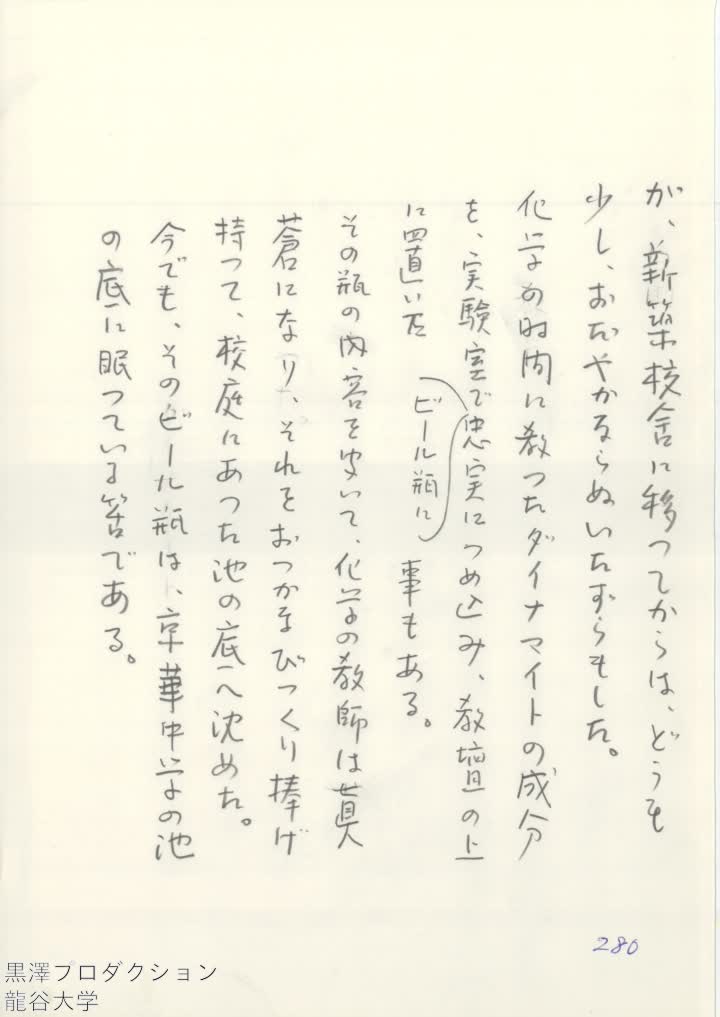 が、新築校舎に移つてからは、どうも
少し、おだやかならぬいたずらもした。
化学の時間に教つたダイナマイトの成分
を、実験室で忠実につめ込み、教壇の上
ビール瓶に
に置いた事もある。
その瓶の内容を聞いて、化学の教師は真
蒼になり、それをおつかなびつくり捧げ
持つて、校庭にあつた池の底へ沈めた。
今でも、そのビール瓶は、京華中学の池
の底に眠つている筈である。
280
黒澤プロダクション
龍谷大学